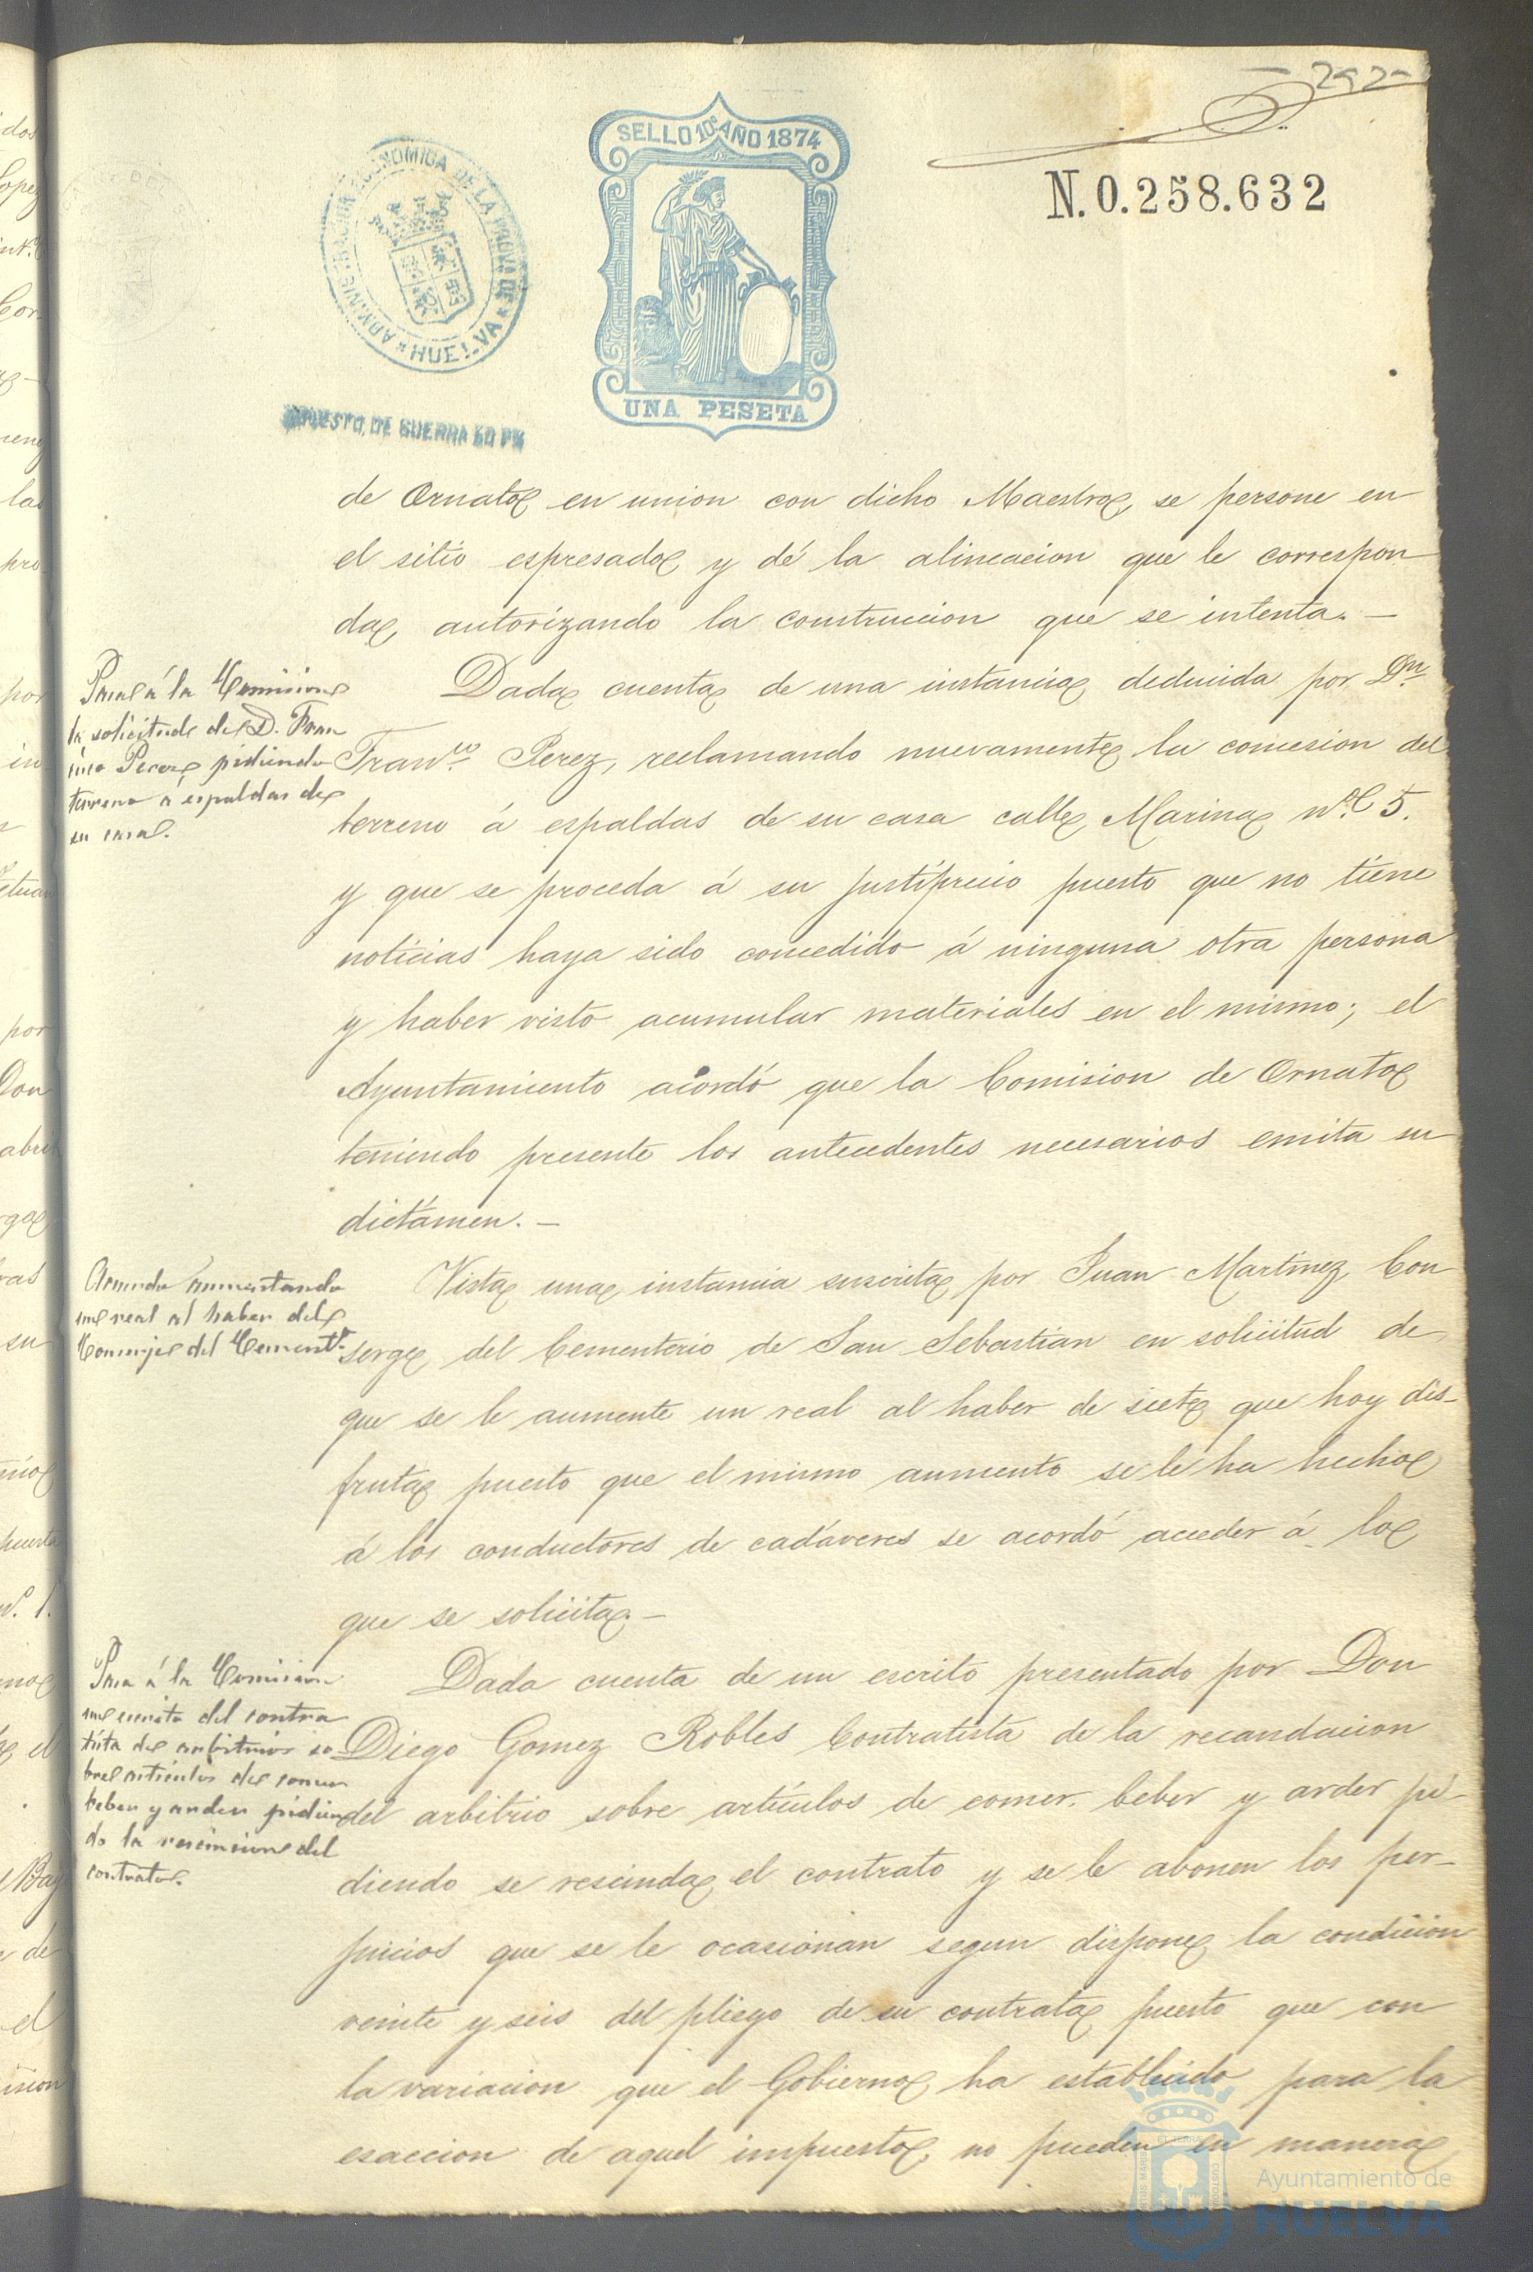 292
SELLO 10º AÑO 1874
UNA PESETA
ADMINISTRACION ECONOMICA DE LA PROVA DE HUELVA
IMPUESTO DE GUERRA 50 PS
N. 0.258.632
de Ornato en union con dicho Maestro, se persone en
el sitio espresado y dé la alineacion que le correspon
da, autorizando la construccion que se intenta. —
Pase á la Comision
la solicitud de D. Fran
cisco Perez pidiendo
terreno á espaldas de
su casa.
Dada cuenta de una instancia deducida por Dn.
Franco. Perez, reclamando nuevamente la concesion del
terreno á espaldas de su casa calle Marina nº. 5.
y que se proceda á su justiprecio puesto que no tiene
noticias haya sido concedido á ninguna otra persona
y haber visto acumular materiales en el mismo; el
Ayuntamiento acordó que la Comision de Ornato
teniendo presente los antecedentes necesarios emita su
dictámen. —
Acuerdo aumentando
un real al haber del
Conserje del Cementº.
Vista una instancia suscrita por Juan Martinez Con
serge del Cementerio de San Sebastian en solicitud de
que se le aumente un real al haber de siete que hoy dis-
fruta puesto que el mismo aumento se le ha hecho
á los conductores de cadáveres se acordó acceder á lo
que se solicita. —
Pasa á la Comision
un escrito del contra
tista de arbitrios so
bre articulos de comer
beber y arder pidien
do la rescision del
contrato.
Dada cuenta de un escrito presentado por Don
Diego Gomez Robles Contratista de la recaudacion
del arbitrio sobre artículos de comer, beber y arder pi-
diendo se rescinda el contrato y se le abonen los per-
juicios que se le ocasionan segun dispone la condicion
veinte y seis del pliego de su contrata puesto que con
la variacion que el Gobierno ha establecido para la
esaccion de aquel impuesto, no pueden en manera
Ayuntamiento de
HUELVA